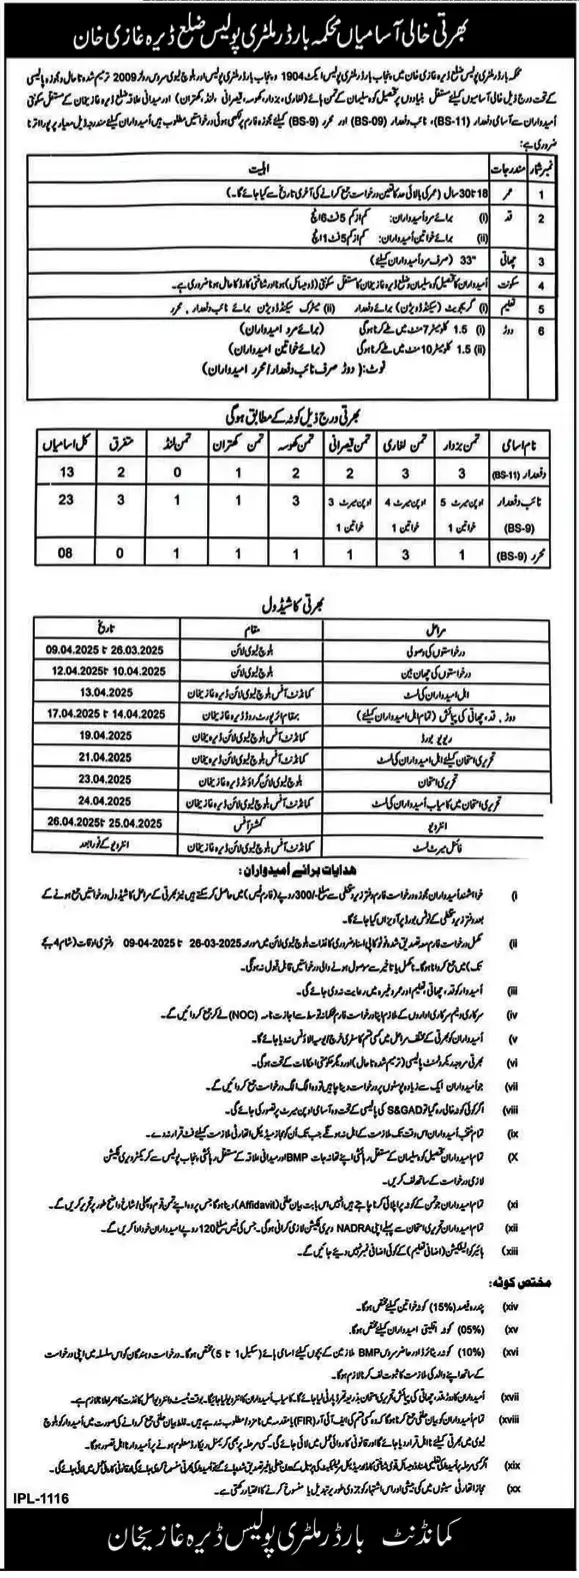 بھرتی خالی آسامیاں محکمہ بارڈر ملٹری پولیس ضلع ڈیرہ غازی خان
محکمہ بارڈر ملٹری پولیس ضلع ڈیرہ غازی خان میں پنجاب بارڈر ملٹری پولیس ایکٹ 1904 و پنجاب بارڈر ملٹری پولیس اور بلوچ لیوی سروس رولز 2009 ترمیم شدہ تا حال و مجوزہ پالیسی
کے تحت درج ذیل خالی آسامیوں کیلئے مستقل بنیادوں پر تحصیل کوہ سلیمان کے تمن ہائے (لغاری، بزدار، کھوسہ، قیصرانی، لنڈ، کھتران) اور میدانی علاقہ ضلع ڈیرہ غازیخان کے مستقل سکونتی
امیدواران سے آسامی دفعدار (BS-11)، نائب دفعدار (BS-09) اور محرر (BS-9) کیلئے مجوزہ فارم پر لکھی ہوئی درخواستیں مطلوب ہیں امیدواران کیلئے مندرجہ ذیل معیار پر پورا اترنا
ضروری ہے:
نمبر شمار مندرجات اہلیت
1 عمر 18 تا 30 سال (عمر کی بالائی حد کا تعین درخواست جمع کرانے کی آخری تاریخ سے کیا جائے گا۔)
2 قد (i) برائے مرد امیدواران: کم از کم 5 فٹ 6 انچ
(ii) برائے خواتین امیدواران: کم از کم 5 فٹ 1 انچ
3 چھاتی "33 (صرف مرد امیدواران کیلئے)
4 سکونت امیدواران کا تحصیل کوہ سلیمان و ضلع ڈیرہ غازیخان کا مستقل سکونتی (ڈومیسائل) ہونا اور شناختی کارڈ کا حامل ہونا ضروری ہے۔
5 تعلیم (i) گریجویٹ (سیکنڈ ڈویژن) برائے دفعدار (ii) میٹرک سیکنڈ ڈویژن برائے نائب دفعدار، محرر
6 دوڑ (i) 1.5 کلومیٹر 7 منٹ میں طے کرنا ہوگی (برائے مرد امیدواران)
(ii) 1.5 کلومیٹر 10 منٹ میں طے کرنا ہوگی (برائے خواتین امیدواران)
نوٹ: (دوڑ صرف نائب دفعدار/محرر امیدواران)
بھرتی درج ذیل کوٹہ کے مطابق ہوگی
نام اسامی تمن بزدار تمن لغاری تمن قیصرانی تمن کھوسہ تمن کھتران تمن لنڈ متفرق کل اسامیاں
دفعدار (BS-11) 3 3 2 2 1 0 2 13
نائب دفعدار (BS-9) اوپن میرٹ 5 خواتین 1 اوپن میرٹ 4 خواتین 1 اوپن میرٹ 3 خواتین 1 3 1 1 3 23
محرر (BS-9) 1 3 1 1 1 1 0 08
بھرتی کا شیڈول
مراحل مقام تاریخ
درخواستوں کی وصولی بلوچ لیوی لائن 26.03.2025 تا 09.04.2025
درخواستوں کی چھان بین بلوچ لیوی لائن 10.04.2025 تا 12.04.2025
اہل امیدواران کی لسٹ کمانڈنٹ آفس بلوچ لیوی لائن ڈیرہ غازیخان 13.04.2025
دوڑ، قد، چھاتی کی پیمائش (تمام اہل امیدواران کیلئے) بمقام ائرپورٹ روڈ ڈیرہ غازیخان 14.04.2025 تا 17.04.2025
ریویو بورڈ کمانڈنٹ آفس بلوچ لیوی لائن ڈیرہ غازیخان 19.04.2025
تحریری امتحان کیلئے اہل امیدواران کی لسٹ کمانڈنٹ آفس بلوچ لیوی لائن ڈیرہ غازیخان 21.04.2025
تحریری امتحان بلوچ لیوی لائن گراؤنڈ ڈیرہ غازیخان 23.04.2025
تحریری امتحان میں کامیاب امیدواران کی لسٹ کمانڈنٹ آفس بلوچ لیوی لائن ڈیرہ غازیخان 24.04.2025
انٹرویو کمشنر آفس 25.04.2025 تا 26.04.2025
فائنل میرٹ لسٹ کمانڈنٹ آفس بلوچ لیوی لائن ڈیرہ غازیخان انٹرویو کے فوراً بعد
ہدایات برائے امیدواران:
(i خواہشمند امیدواران مجوزہ درخواست فارم دفتر زیر دستخطی سے مبلغ -/300 روپے (فارم فیس) میں حاصل کر سکتے ہیں نیز بھرتی کے مراحل کا شیڈول درخواستیں جمع ہونے کے
بعد دفتر زیر دستخطی کے نوٹس بورڈ پر آویزاں کیا جائے گا۔
(ii مکمل درخواست فارم معہ تصدیق شدہ فوٹو کاپی اسناد ضروری کاغذات بلوچ لیوی لائن میں مورخہ 2025-03-26 تا 2025-04-09 دفتری اوقات (شام 4 بجے
تک) میں جمع کروانا ہوگا۔ نامکمل یا تاخیر سے موصول ہونے والی درخواستیں قابل قبول نہ ہوگی۔
(iii امیدوار کو قد، چھاتی، تعلیم اور عمر وغیرہ میں رعایت نہ دی جائے گی۔
(iv سرکاری و نیم سرکاری اداروں کے ملازم اپنا درخواست فارم محکمانہ توسط سے اجازت نامہ (NOC) لے کر جمع کروائیں گے۔
(v امیدواران کو بھرتی کے مختلف مراحل میں کسی قسم کا سفری خرچ / یومیہ الاؤنس نہ دیا جائے گا۔
(vi بھرتی مروجہ ریکروٹمنٹ پالیسی (ترمیم شدہ تا حال) اور دیگر حکومتی احکامات کے تحت ہوگی۔
(vii جو امیدواران ایک سے زیادہ پوسٹوں پر درخواست دینا چاہیں تو وہ الگ الگ درخواست جمع کروائیں گے۔
(viii اگر کوئی کوٹہ خالی رہ گیا تو S&GAD کی پالیسی کے تحت وہ آسامی اوپن میرٹ پر تصور کی جائے گی۔
(ix تمام منتخب امیدواران اس وقت تک ملازمت کے اہل نہ ہونگے جب تک اُن کو مجاز میڈیکل اتھارٹی ملازمت کیلئے فٹ قرار نہ دے۔
(X تمام امیدواران تحصیل کوہ سلیمان کے مستقل رہائشی اپنے تھانہ جات BMP اور میدانی علاقہ کے مستقل رہائشی پنجاب پولیس سے کریکٹر ویریفکیشن
لازمی درخواست کے ساتھ لف کریں۔
(xi تمام امیدواران جو تمن کے کوٹہ پر اپلائی کرنا چاہتے ہیں انہیں اس بابت بیان حلفی (Affidavit) دینا ہوگا جس پر وہ اپنے تمن قوم و پھلی / شاخ واضح طور پر تحریر کریں گے۔
(xii تمام امیدواران تحریری امتحان سے پہلے اپنی NADRA ویریفکیشن لازمی کرانی ہوگی۔ جس کی فیس مبلغ 120 روپے امیدواران خود ادا کریں گے۔
(xiii ہائیر کوالیفکیشن (اضافی تعلیم) کے کوئی اضافی نمبر نہیں دیے جائیں گے۔
مختص کوٹہ:
(xiv پندرہ فیصد (15%) کوٹہ خواتین کیلئے مختص ہوگا۔
(xv (05%) کوٹہ اقلیتی امیدواران کیلئے مختص ہوگا۔
(xvi (10%) کوٹہ ریٹائرڈ اور حاضر سروس BMP ملازمین کے بچوں کیلئے اسامی ہائے (سکیل 1 تا 5) مختص ہوگا۔ درخواست دہندگان کو اس سلسلہ میں اپنی درخواست
کے ساتھ اپنے والد کی ملازمت کا ثبوت لف کرنا لازم ہوگا۔
(xvii امیدواران کا دوڑ، قد، چھاتی کی پیمائش تحریری امتحان بذریعہ تھرڈ پارٹی لیا جائے گا۔ کامیاب امیدواران کا انٹرویو لیا جائیگا۔ بوقت ٹیسٹ و انٹرویو اصل کاغذات ہمراہ لانا لازم ہے۔
(xviii تمام امیدواران کو بیان حلفی جمع کرنا ہوگا کہ وہ کسی قسم کی ایف آئی آر (FIR) یا مقدمہ میں نامزد / مطلوب نہ رہے ہیں۔ غلط بیان حلفی جمع کروانے کی صورت میں امیدوار کو بلوچ
لیوی میں بھرتی کیلئے نا اہل قرار دیا جائے گا اور قانونی کاروائی عمل میں لائی جائے گی۔ کسی مرحلہ پر بھی کریمنل ریکارڈ معلوم ہونے پر امیدوار نا اہل تصور ہوگا۔
(xix اگر کسی مرحلہ پر امیدوار کی تعلیمی اسناد، ڈومیسائل، قومی شناختی کارڈ اور میڈیکل سرٹیفکیٹ کی پڑتال کے دوران جعلی یا غیر تصدیق شدہ پائے گئے تو امیدوار کی بھرتی منسوخ کر دی جائے گی اور قانونی کاروائی عمل میں لائی جائے گی۔
(xx مجاز اتھارٹی سیٹوں میں کمی بیشی اور اس اشتہار کو جزوی طور پر تبدیل یا منسوخ کرنے کا اختیار رکھتی ہے۔
IPL-1116
کمانڈنٹ بارڈر ملٹری پولیس ڈیرہ غازیخان